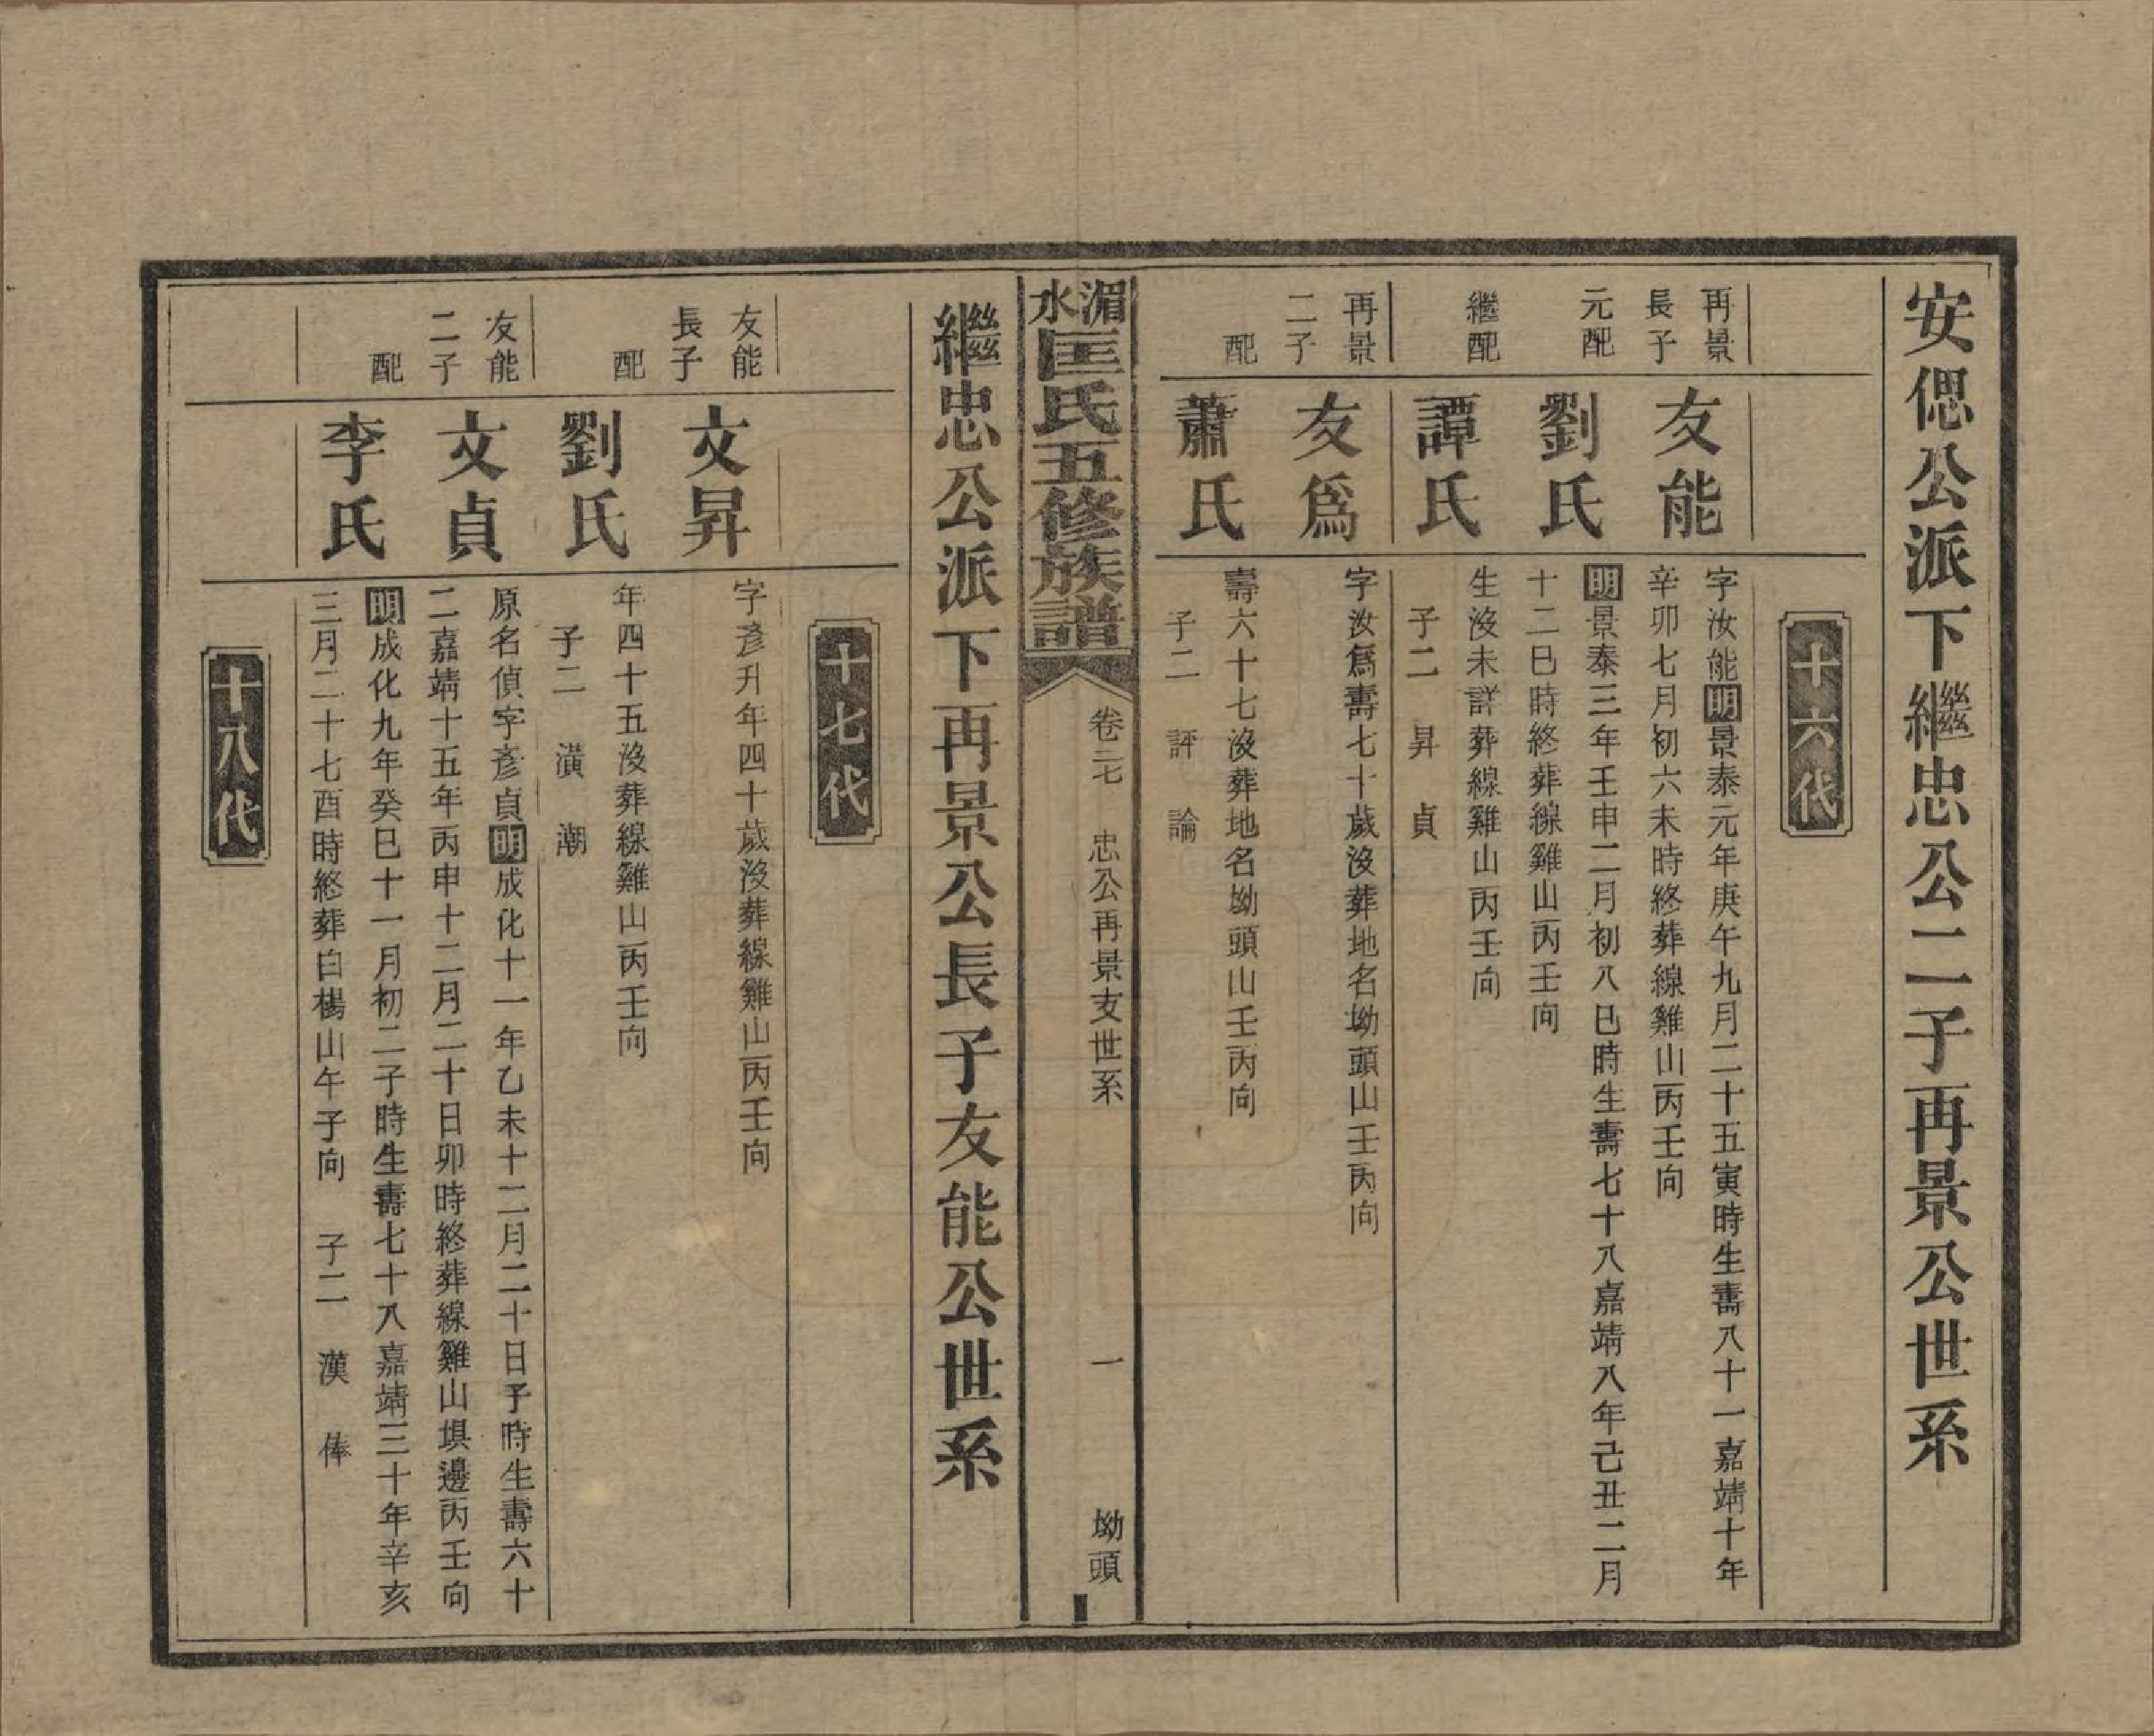 安偲公派下繼忠公二子再景公世系
十六代
再景長子
友能
字汝能明景泰元年庚午九月二十五寅時生壽八十一嘉靖十年
辛卯七月初六未時終葬線雞山丙壬向
元配
劉氏
明景泰三年壬申二月初八巳時生壽七十八嘉靖八年己丑二月
十二巳時終葬線雞山丙壬向
繼配
譚氏
生沒未詳葬線雞山丙壬向
子二 昇 貞
再景二子
友爲
字汝爲壽七十歲沒葬地名坳頭山壬丙向
配
蕭氏
壽六十七沒葬地名坳頭山壬丙向
子二 評 論
湄水匡氏五修族譜
卷二七 忠公再景支世系 一 坳頭
繼忠公派下再景公長子友能公世系
十七代
友能長子
文昇
字彥升年四十歲沒葬線雞山丙壬向
配
劉氏
年四十五沒葬線雞山丙壬向
子二 潢 潮
友能二子
文貞
原名偵字彥貞明成化十一年乙未十二月二十日子時生壽六十
二嘉靖十五年丙申十二月二十日卯時終葬線雞山塤邊丙壬向
配
李氏
明成化九年癸巳十一月初二子時生壽七十八嘉靖三十年辛亥
三月二十七酉時終葬白楊山午子向 子二 漢 俸
十八代